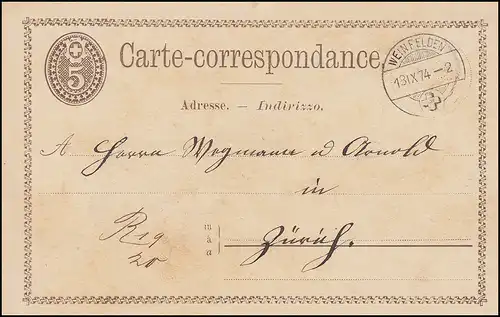 5
Carte-correspondance.
WEINFELDEN
13 IX 74 – 2
Adresse. — Indirizzo.
A Herrn Wegmann u Arnold
in
à
a
Zürich.